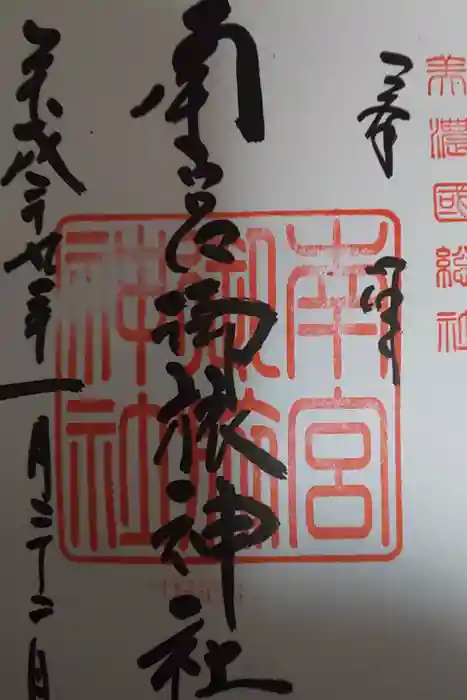 美濃國総社
奉拝
南宮御旅神社
平成二十九年一月二十二日
南宮
御旅
神社